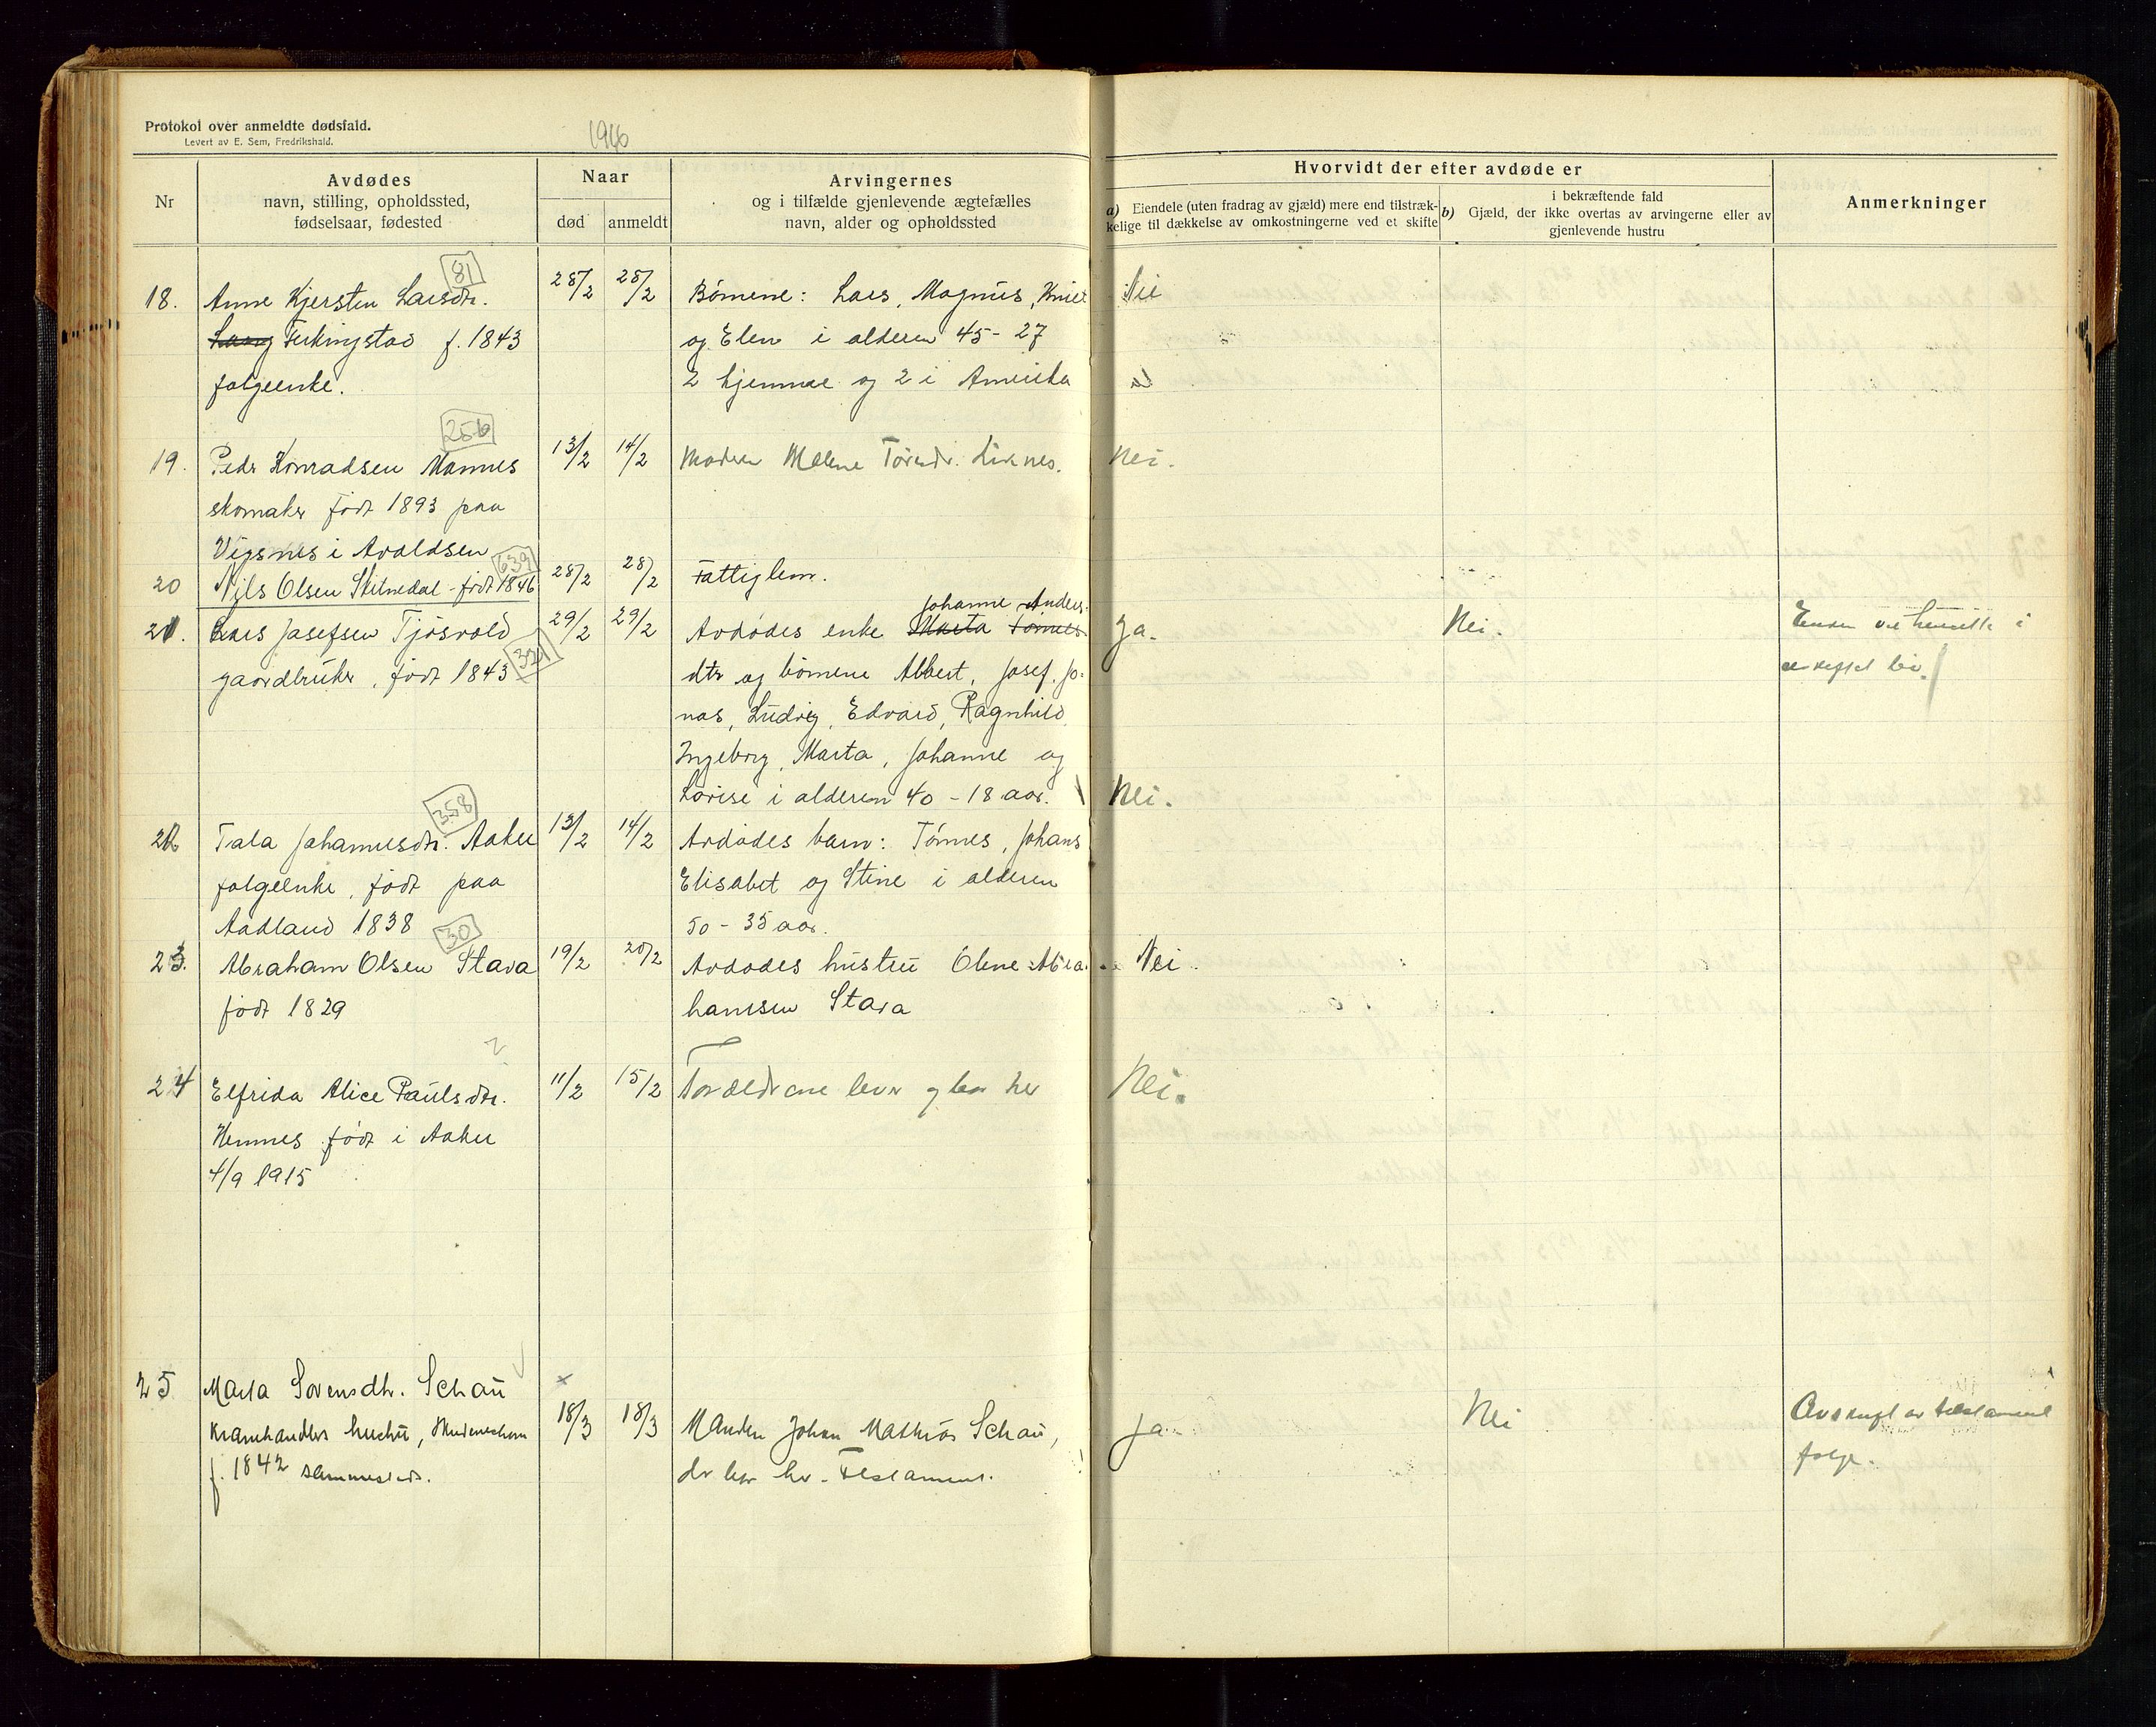 Protokol over anmeldte dødsfald.
Levert av E. Sem, Fredrikshald.
1916
Nr
Avdødes
navn, stilling, opholdssted,
fødselsaar, fødested
Naar
død
anmeldt
Arvingernes
og i tilfælde gjenlevende ægtefælles
navn, alder og opholdssted
Hvorvidt der efter avdøde er
a) Eiendele (uten fradrag av gjæld) mere end tilstræk-
kelige til dækkelse av omkostningerne ved et skifte
i bekræftende fald
b) Gjæld, der ikke overtas av arvingerne eller av
gjenlevende hustru
Anmerkninger
81
18. Anne Kjersten Larsdtr. 28/2 28/2 Børnene: Lars, Magnus, Nei
Ferkingstad f. 1843 og Elen i alderen 45 - 27
folgeenke. 2 hjemme og 2 i Amerika
256
19. Peder Konradsen Mannes 13/2 14/2 Moderen Malene Liknes. Nei.
skomaker født 1893 paa
Vigsnes i Avaldsen
639
20 Nils Olsen Stilnedal - født 1846 28/2 28/2 Fattiglem.
Johanne Anders-
21. Lars Josefsen Tjøsvold 29/2 29/2 Avdødes enke Marta Tørnes- Ja. Nei. Enken vil hensitte i
321
gaardbruker, født 1843 dtr og børnene Albert, Josef, Jo-
uskiftet bo.
nas, Ludvig, Edvard, Ragnhild,
Ingeborg, Marta, Johanne og
Lovise i alderen 40 - 18 aar. Nei.
358
22 Tala Johannesdtr. Aakre 13/2 14/2 Avdødes barn: Tønnes, Johans
folgeenke, født paa Elisabet og Stine i alderen
Aadland 1838 50 - 35 aar.
30
23. Abraham Olsen Stava 19/2 20/2 Avdødes hustru Olene Abra- Nei.
født 1829 hamsen Stava
24 Elfrida Alice Paulsdtr. 11/2 15/2 Forældrene lever og bor her Nei.
Hemnes født i Aakre
4/9 1915
25 Maria Sørensdtr. Schau
Kramhandlers hustru, Skudeneshavn 18/3 18/3 Manden Johan Mathias Schau, Ja. Nei Avskrift av testament
f. 1842 sammesteds. der bor her. Testament. følge.